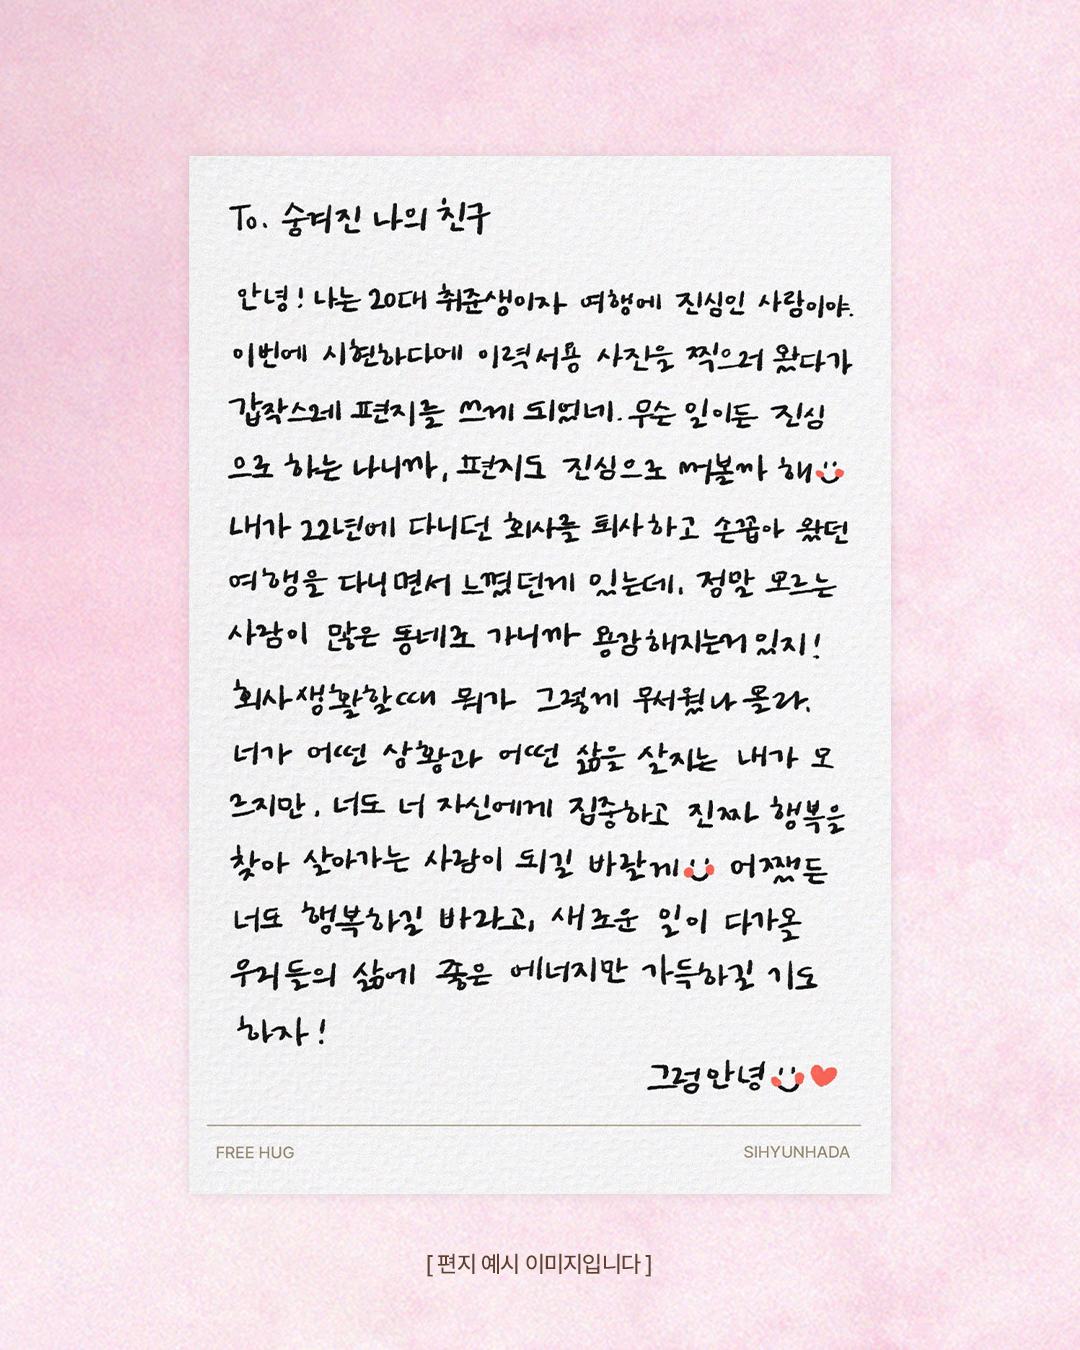 To. 숨겨진 나의 친구
안녕! 나는 20대 취준생이자 여행에 진심인 사람이야.
이번에 시현하다에 이력서용 사진을 찍으러 왔다가
갑작스레 편지를 쓰게 되었네. 무슨 일이든 진심
으로 하는 나니까, 편지도 진심으로 써볼까 해
내가 22년에 다니던 회사를 퇴사하고 손꼽아 왔던
여행을 다니면서 느꼈던게 있는데, 정말 모르는
사람이 많은 동네로 가니까 용감해지는거 있지!
회사생활할때 뭐가 그렇게 무서웠나 몰라.
너가 어떤 상황과 어떤 삶을 살지는 내가 모
르지만, 너도 너 자신에게 집중하고 진짜 행복을
찾아 살아가는 사람이 되길 바랄게 어쨌든
너도 행복하길 바라고, 새로운 일이 다가올
우리들의 삶에 좋은 에너지만 가득하길 기도
하자!
그럼안녕
FREE HUG
SIHYUNHADA
[ 편지 예시 이미지입니다 ]